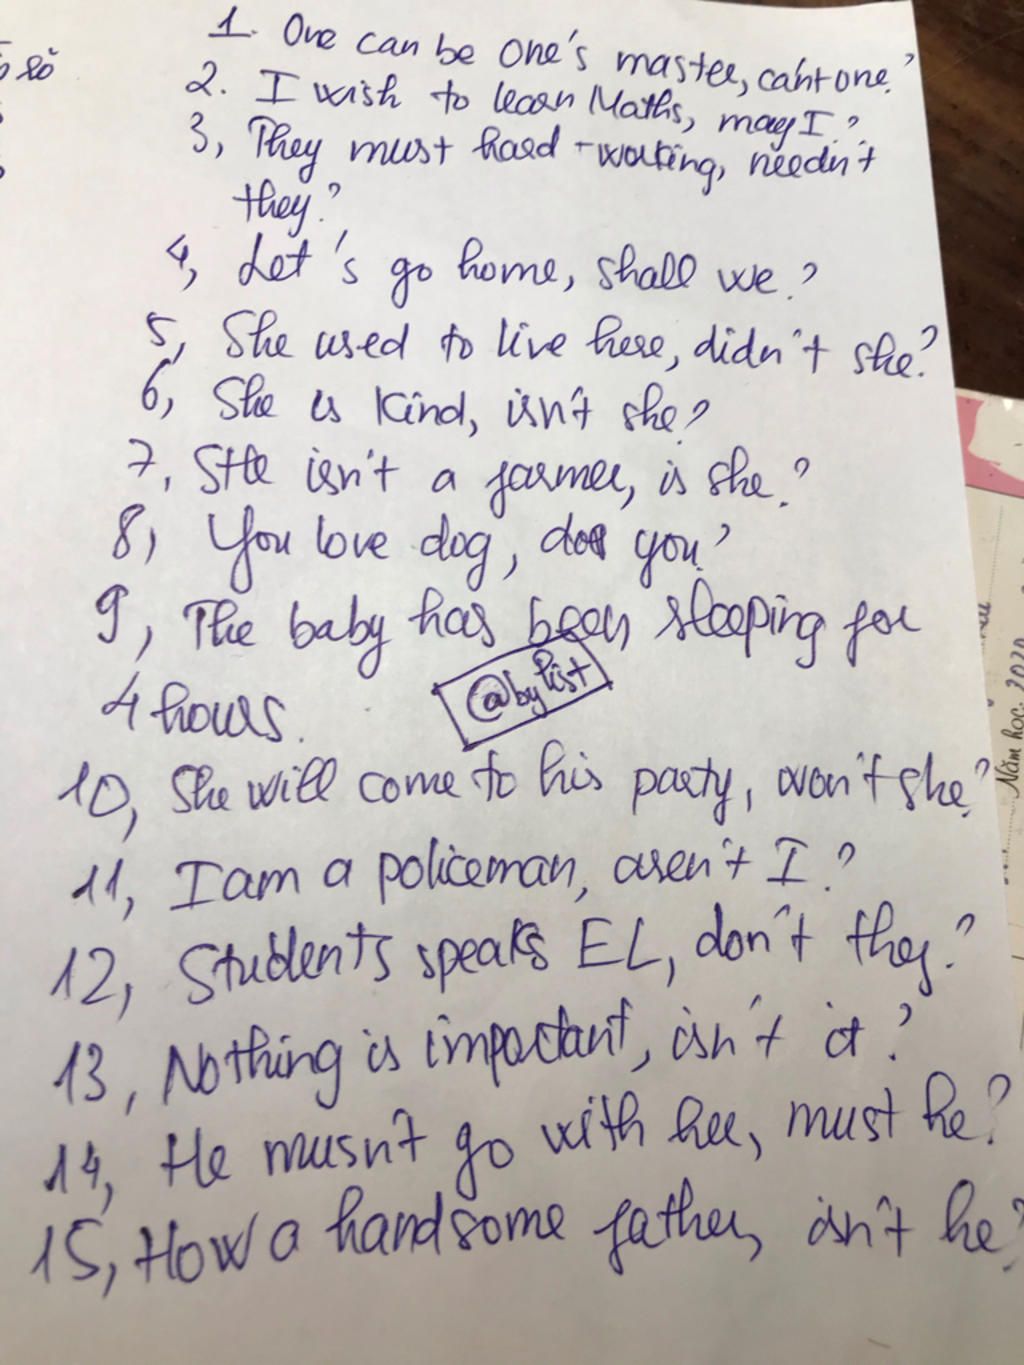 số
1. One can be one's master, can't one?
2. I wish to learn Maths, may I?
3, They must hard-working, needn't
they?
4, Let's go home, shall we?
5, She used to live here, didn't she?
6, She is kind, isn't she?
7, She isn't a farmer, is she?
8, You love dog, do you?
9, The baby has been sleeping for
4 hours.
@bylist
10, She will come to his party, won't she?
11, I am a policeman, aren't I?
12, Students speaks EL, don't they?
13, Nothing is important, isn't it?
14, He musn't go with her, must he?
15, How a handsome father, isn't he?
Năm học: 2020